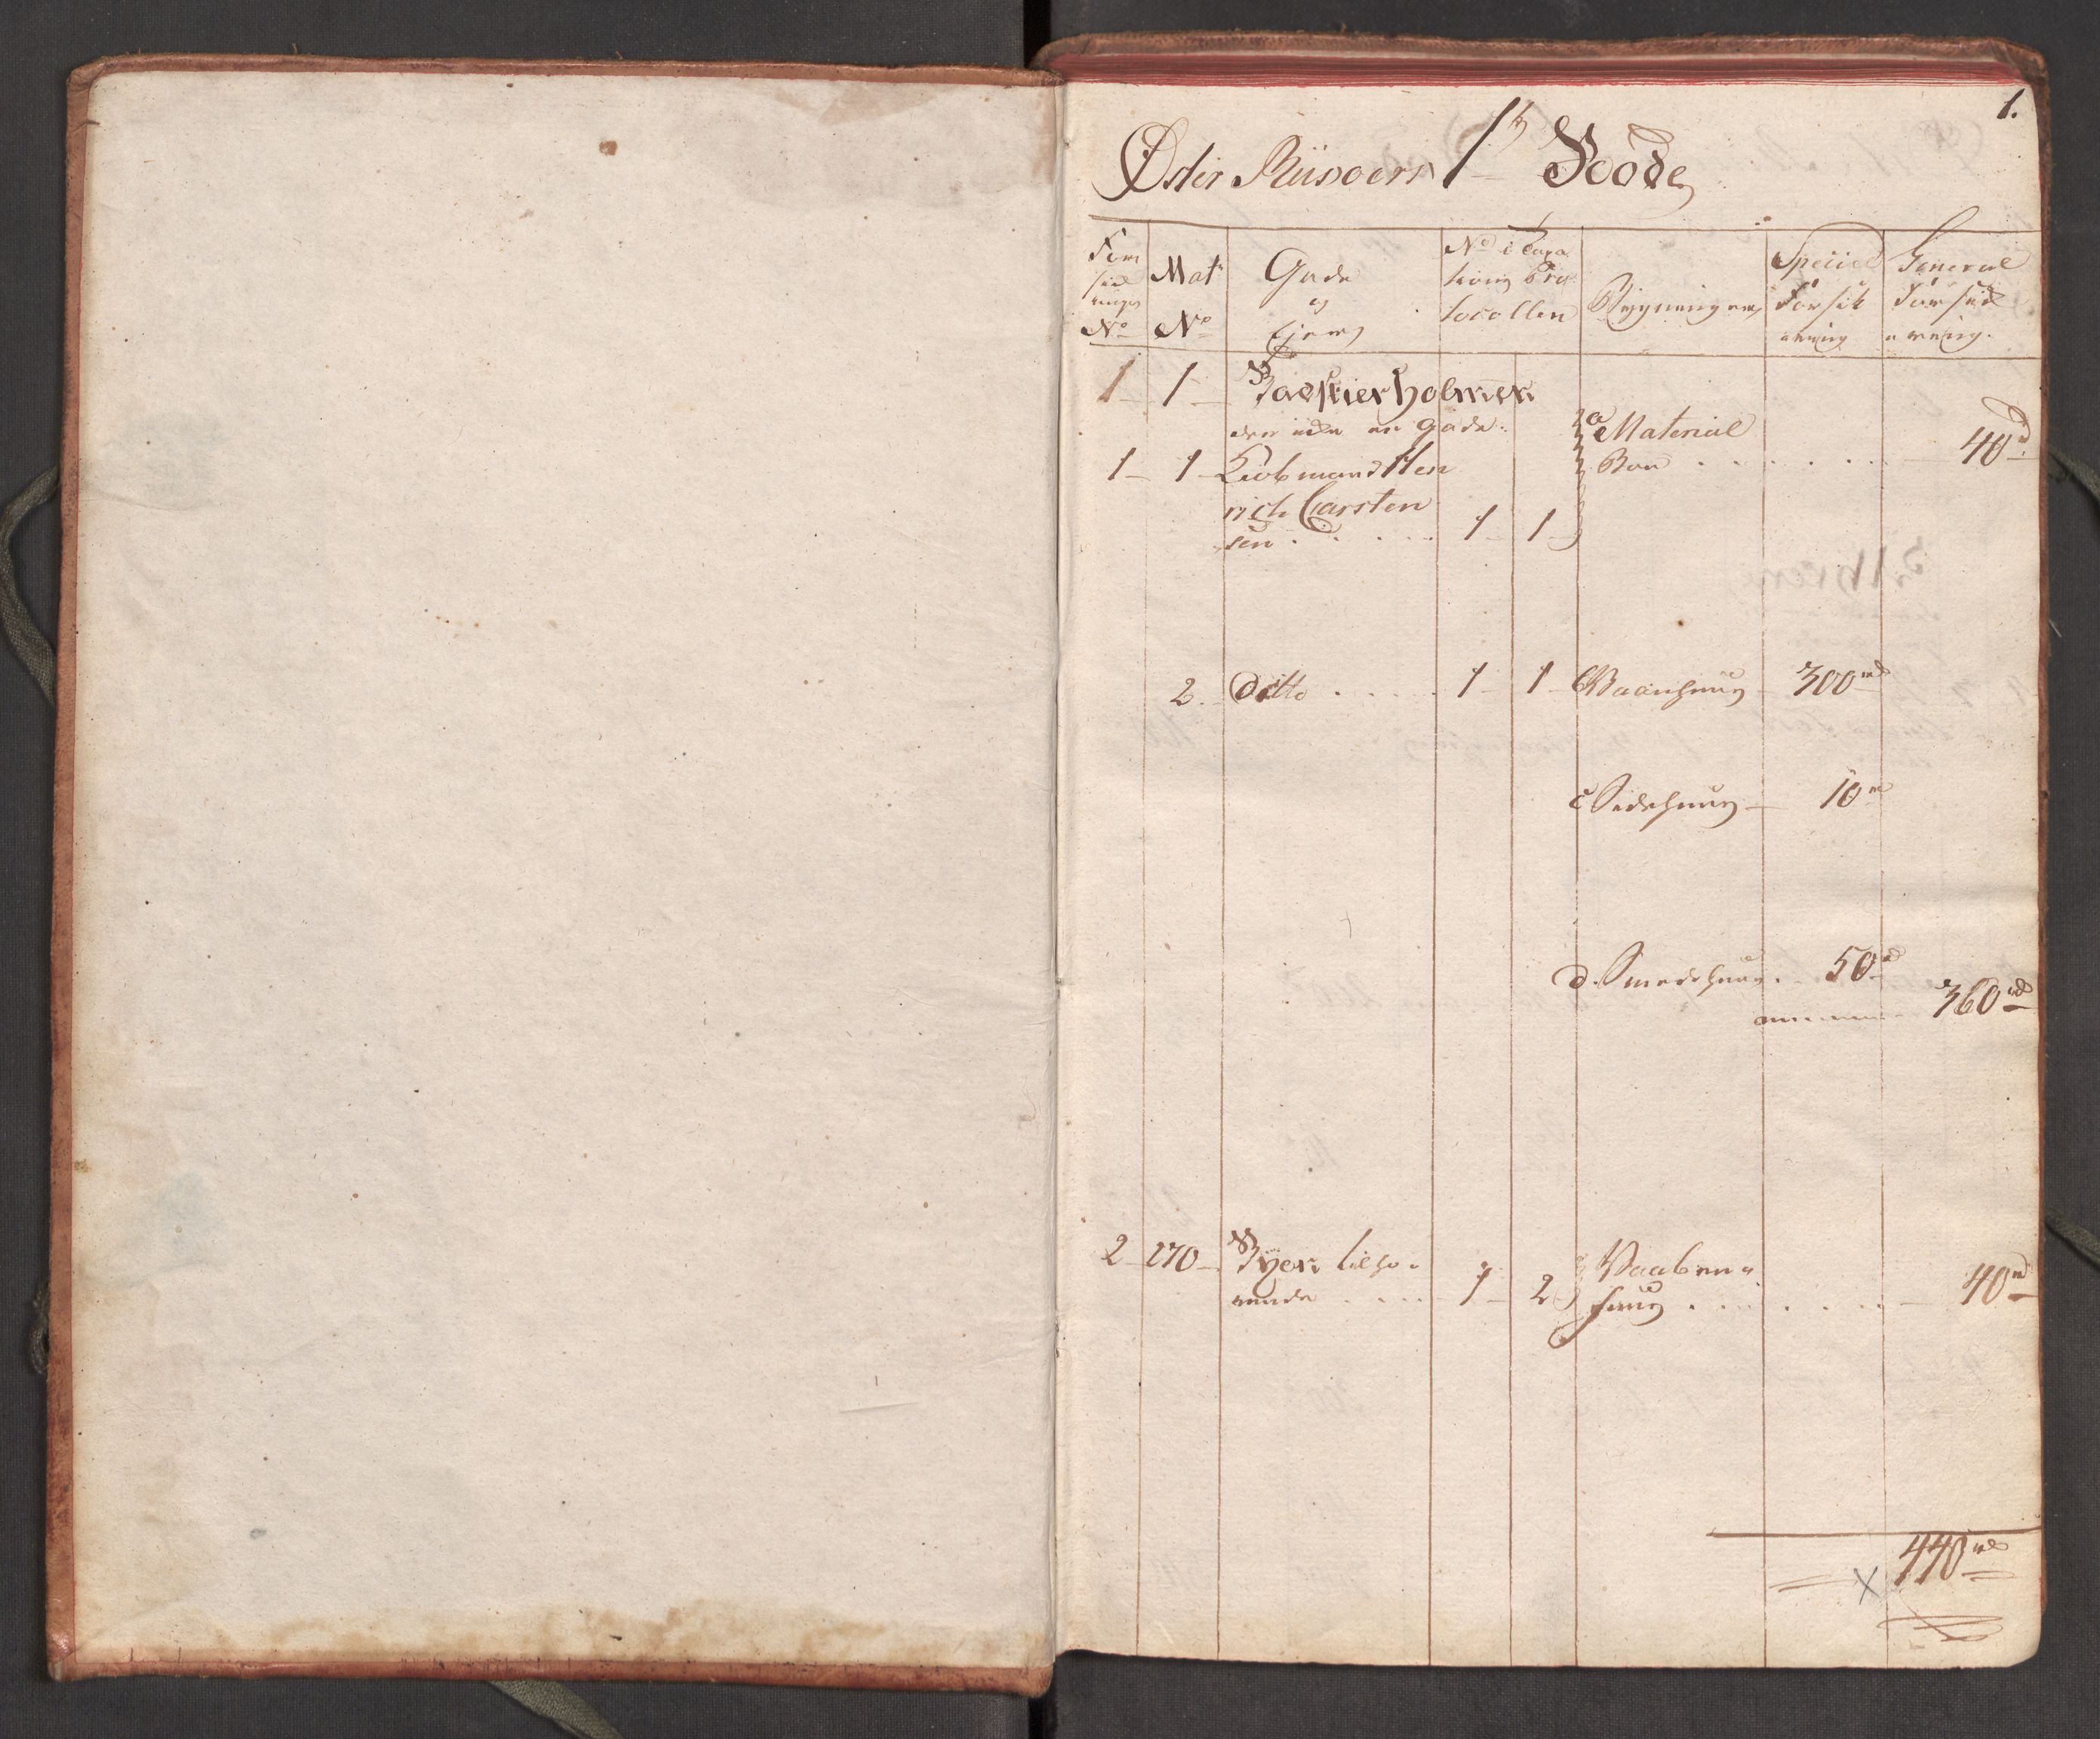 1.
Øster Riisøers 1te Roode
For
sik
rings
No
Matr
No
Gade
og
Ejere
No i Taxa
tions Pro
tocollen
Bygninger
Speciel
Forsik
ering
General
Forsik
ering.
1 1 Holmen
der ikke er Gade.
1 1 Kiøbmand Hen
rich Carsten
sen . . . . . 1 1
a Material
Boe . . . . . . 40 rd
2 Ditto . . . . . 1 1 b Vaanhuus 300 rd
c Sidehuus 10 rd
d. Smedehuus . 50 rd
360 rd
2 270 Byen tilhø
rende . . . . 1 2 Vaaben
huus . . . . . . . 40 rd
440 rd
X